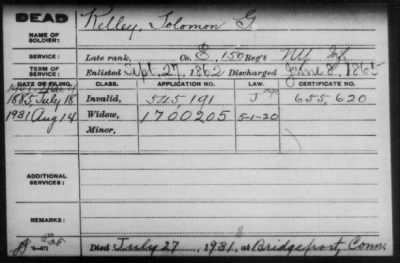 DEAD
Kelley, Solomon G
NAME OF SOLDIER:
SERVICE: Late rank, Co. E, 150 Reg't NY Inf
TERM OF SERVICE: Enlisted Sept. 27, 1862 Discharged June 8, 1865
DATE OF FILING. CLASS. APPLICATION NO. LAW. CERTIFICATE NO.
1885, July 18 Invalid, 545,191 J 655,620
1931 Aug 14 Widow, 1700205 5-1-20
Minor,
ADDITIONAL SERVICES:
REMARKS:
Died July 27, 1931, at Bridgeport, Conn.